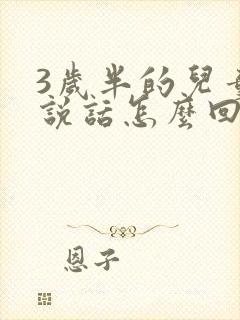 3歲半的兒
説話怎麼回
恩子